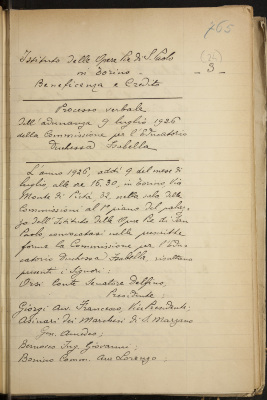 765
Istituto delle Opere Pie di S. Paolo
in Torino
(2)
- 3 -
Beneficenza e Credito
Processo verbale
dell'adunanza 9 luglio 1926
della Commissione per l'Educatorio
Duchessa Isabella
L'anno 1926, addì 9 del mese di
luglio, alle ore 16,30, in Torino, Via
Monte di Pietà, 32, nella sala delle
Commissioni al 1° piano del palaz-
zo dell'Istituto delle Opere Pie di San
Paolo, convocatasi nelle prescritte
forme la Commissione per l'Edu-
catorio Duchessa Isabella, risultano
presenti i signori:
Orsi Conte Senatore Delfino,
Presidente;
Giorgi Avv. Francesco, Vice Presidente;
Asinari dei Marchesi di S. Marzano
Gen. Amedeo;
Bernocco Ing. Giovanni;
Bonino Comm. Avv. Lorenzo;